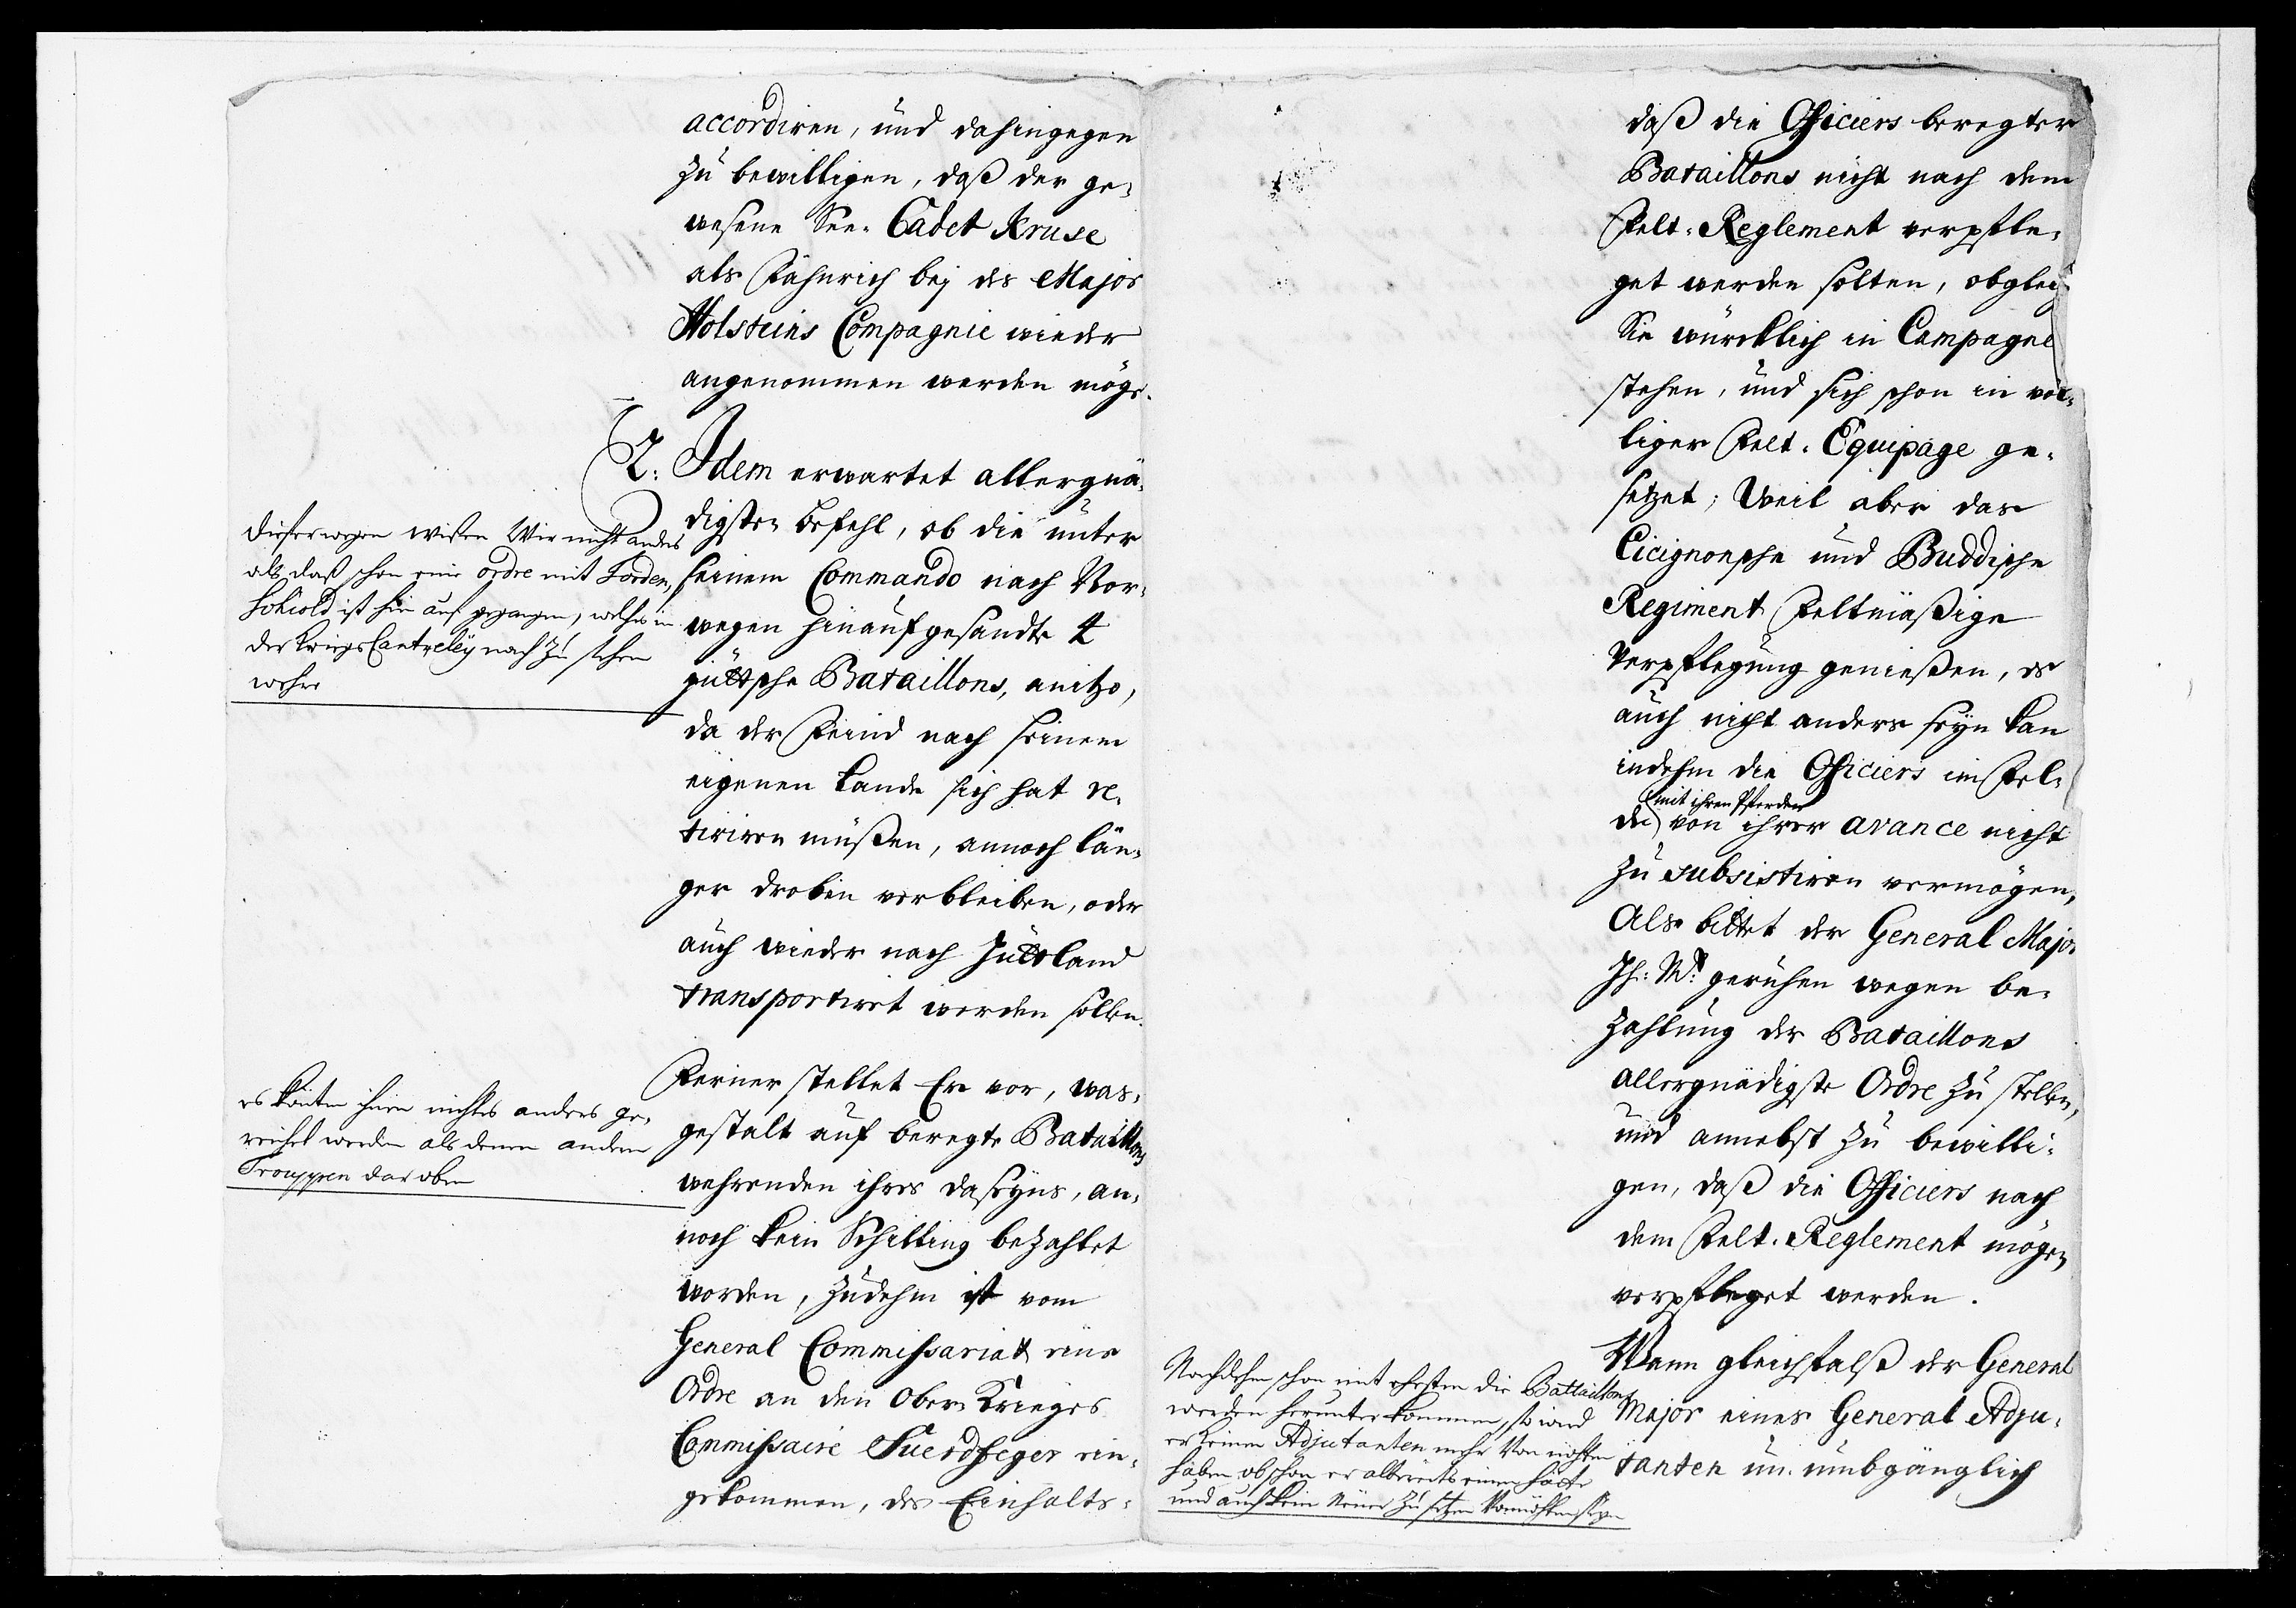 accordiren, und dahingegen
zu bewilligen, daß der ge-
wesene See-Cadet Kruse
als Fähnrich bej des Major
Holsteins Compagnie wieder
angenommen werden möge.
2. Idem erwartet allergnä-
digsten Befehl, ob die unter
seinem Commando nach Nor-
wegen hinaufgesandte 4
jüttsche Bataillons, anitzo,
da der Feind nach seinem
eigenen Lande sich hat re-
tiriren müßen, annoch län-
ger droben verbleiben, oder
auch wieder nach Jüttland
transportiret werden sollen.
Ferner stellet Er vor, was-
gestalt auf beregte Bataillons
wehrenden ihres daseyns, an-
noch kein Schilling bezahlet
worden, zudehm ist vom
General Commissariat eine
Ordre an den Ober-Krieges
Commissaire Suerdfeger ein-
gekommen, des Einhalts-
dieserwegen wißen Wir nicht anders
als daß schon eine ordre mit Torden-
schiold ist hin auf gegangen, welches in
der Kriegs Cantzeley nach zu sehen
wehre
es könte ihnen nichts anders ge-
reichet werden als denen andern
Trouppen dar oben
daß die Officiers beregter
Bataillons nicht nach dem
Felt-Reglement verpfle-
get werden solten, obgleich
Sie würcklich in Campagne
stehen, und sich schon in völ-
liger Felt-Equipage ge-
setzet; Weil aber das
Cicignonsche und Buddische
Regiment Feltmäßige
Verpflegung genießen, es
auch nicht anders seyn kan
indehm die Officiers im Fel-
mit ihren Pferden
de von ihrer avance nicht
zu subsistiren vermögen,
Als bittet der General Major
Ih: M:t geruhen wegen be-
zahlung der Bataillons
allergnädigste Ordre zu stellen,
und annebst zu bewilli-
gen, daß die Officiers nach
dem Felt-Reglement mögen
verpfleget werden.
Wann gleichfalß der General
Major eines General Adju-
tanten un-umbgänglich
Nachdehm schon mit ehesten die Battaillons
werden herunter kommen, so wird
er keinen Adjutanten mehr Von nöhten
haben obschon er allbereits einen hätte
und auch kein Neuer zu setzen Vonnöhten seyn